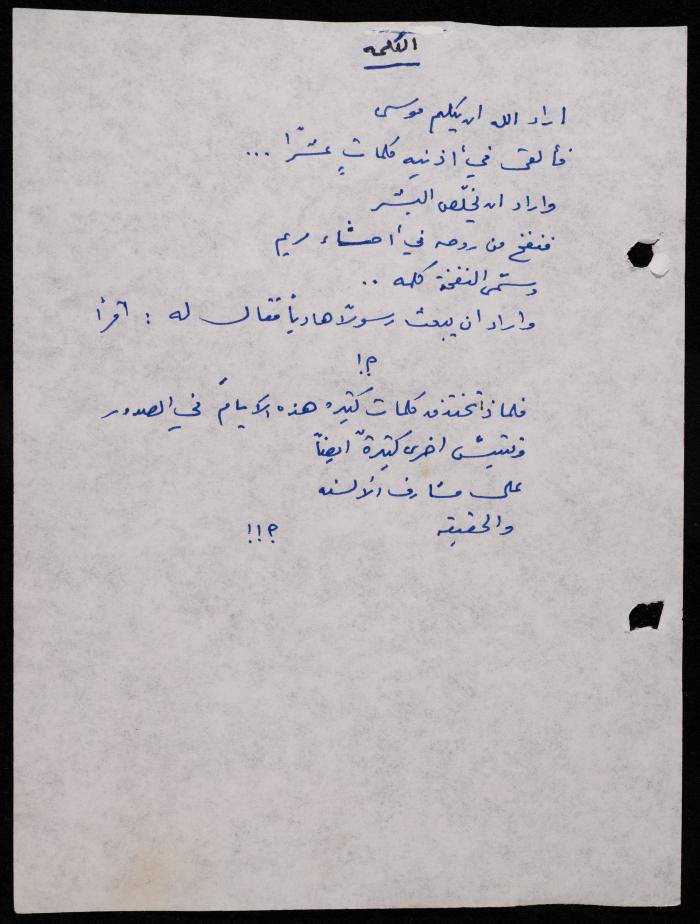 الكلمه
اراد الله ان يكلم موسى
فألقى في أذنيه كلماتٍ عشرًا ...
واراد ان يخلّص البشر
فنفخ من روحه في أحشاء مريم
وستمى النفخة كلمه ..
واراد ان يبعث رسولًا هاديًا فقال له : أقرأ
؟!
فلماذا تختنق كلمات كثيره هذه الايام في الصدور
وتنتيش اخرى كثيرةٌ ايضًا
على مشارف الألسنه
والحقيقه ؟!!